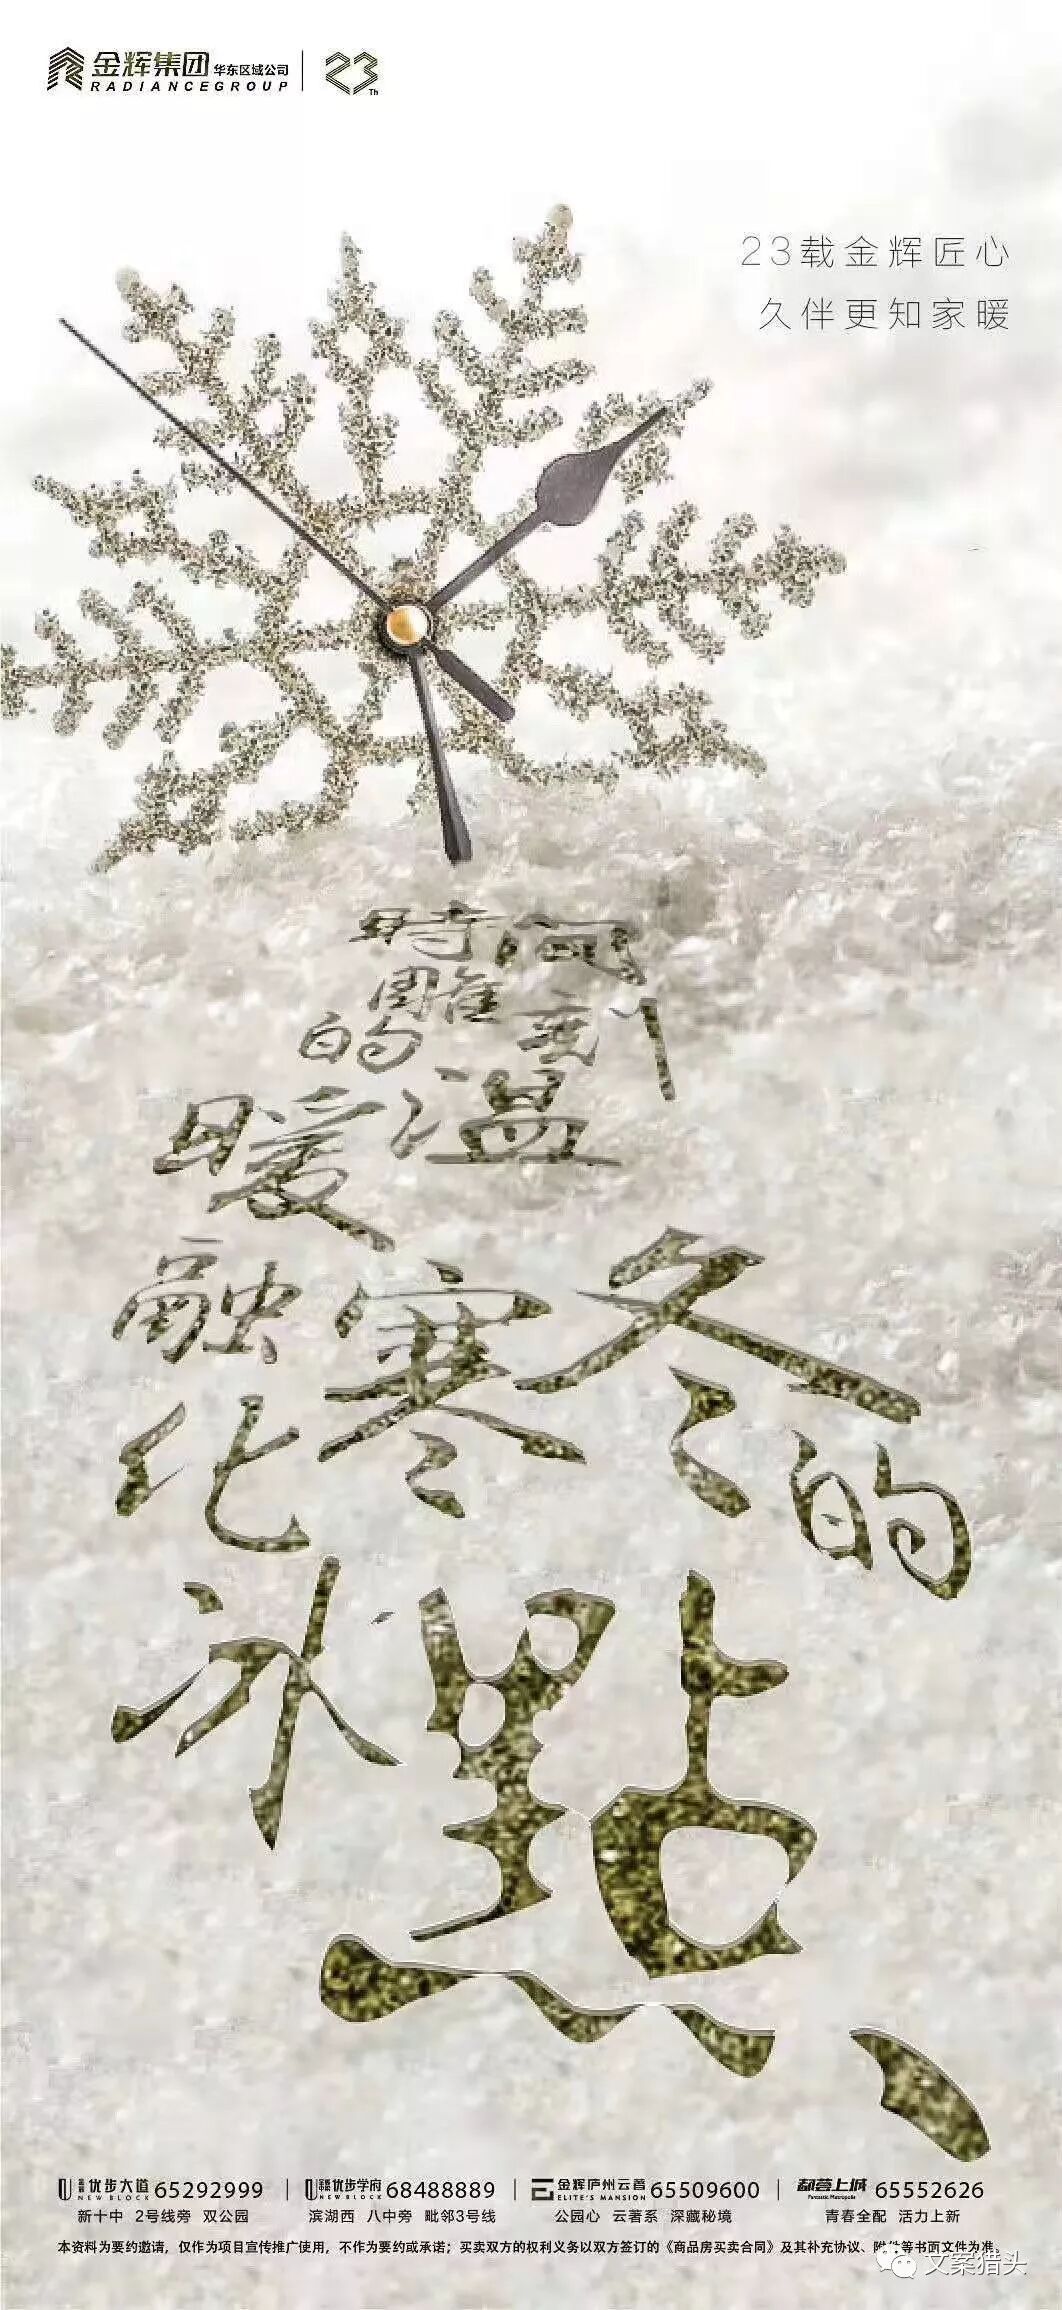 金辉集团 华东区域公司
RADIANCEGROUP
23Th
23载金辉匠心
久伴更知家暖
時間
雕刻
的
溫暖
融化
寒冬的
冰點
优步大道 65292999
NEW BLOCK
新十中 2号线旁 双公园
优步学府 68488889
NEW BLOCK
滨湖西 八中旁 毗邻3号线
金辉庐州云著 65509600
ELITE'S MANSION
公园心 云著系 深藏秘境
都荟上城 65552626
Fantastic Metropolis
青春全配 活力上新
本资料为要约邀请，仅作为项目宣传推广使用，不作为要约或承诺；买卖双方的权利义务以双方签订的《商品房买卖合同》及其补充协议、附件等书面文件为准。
文案猎头